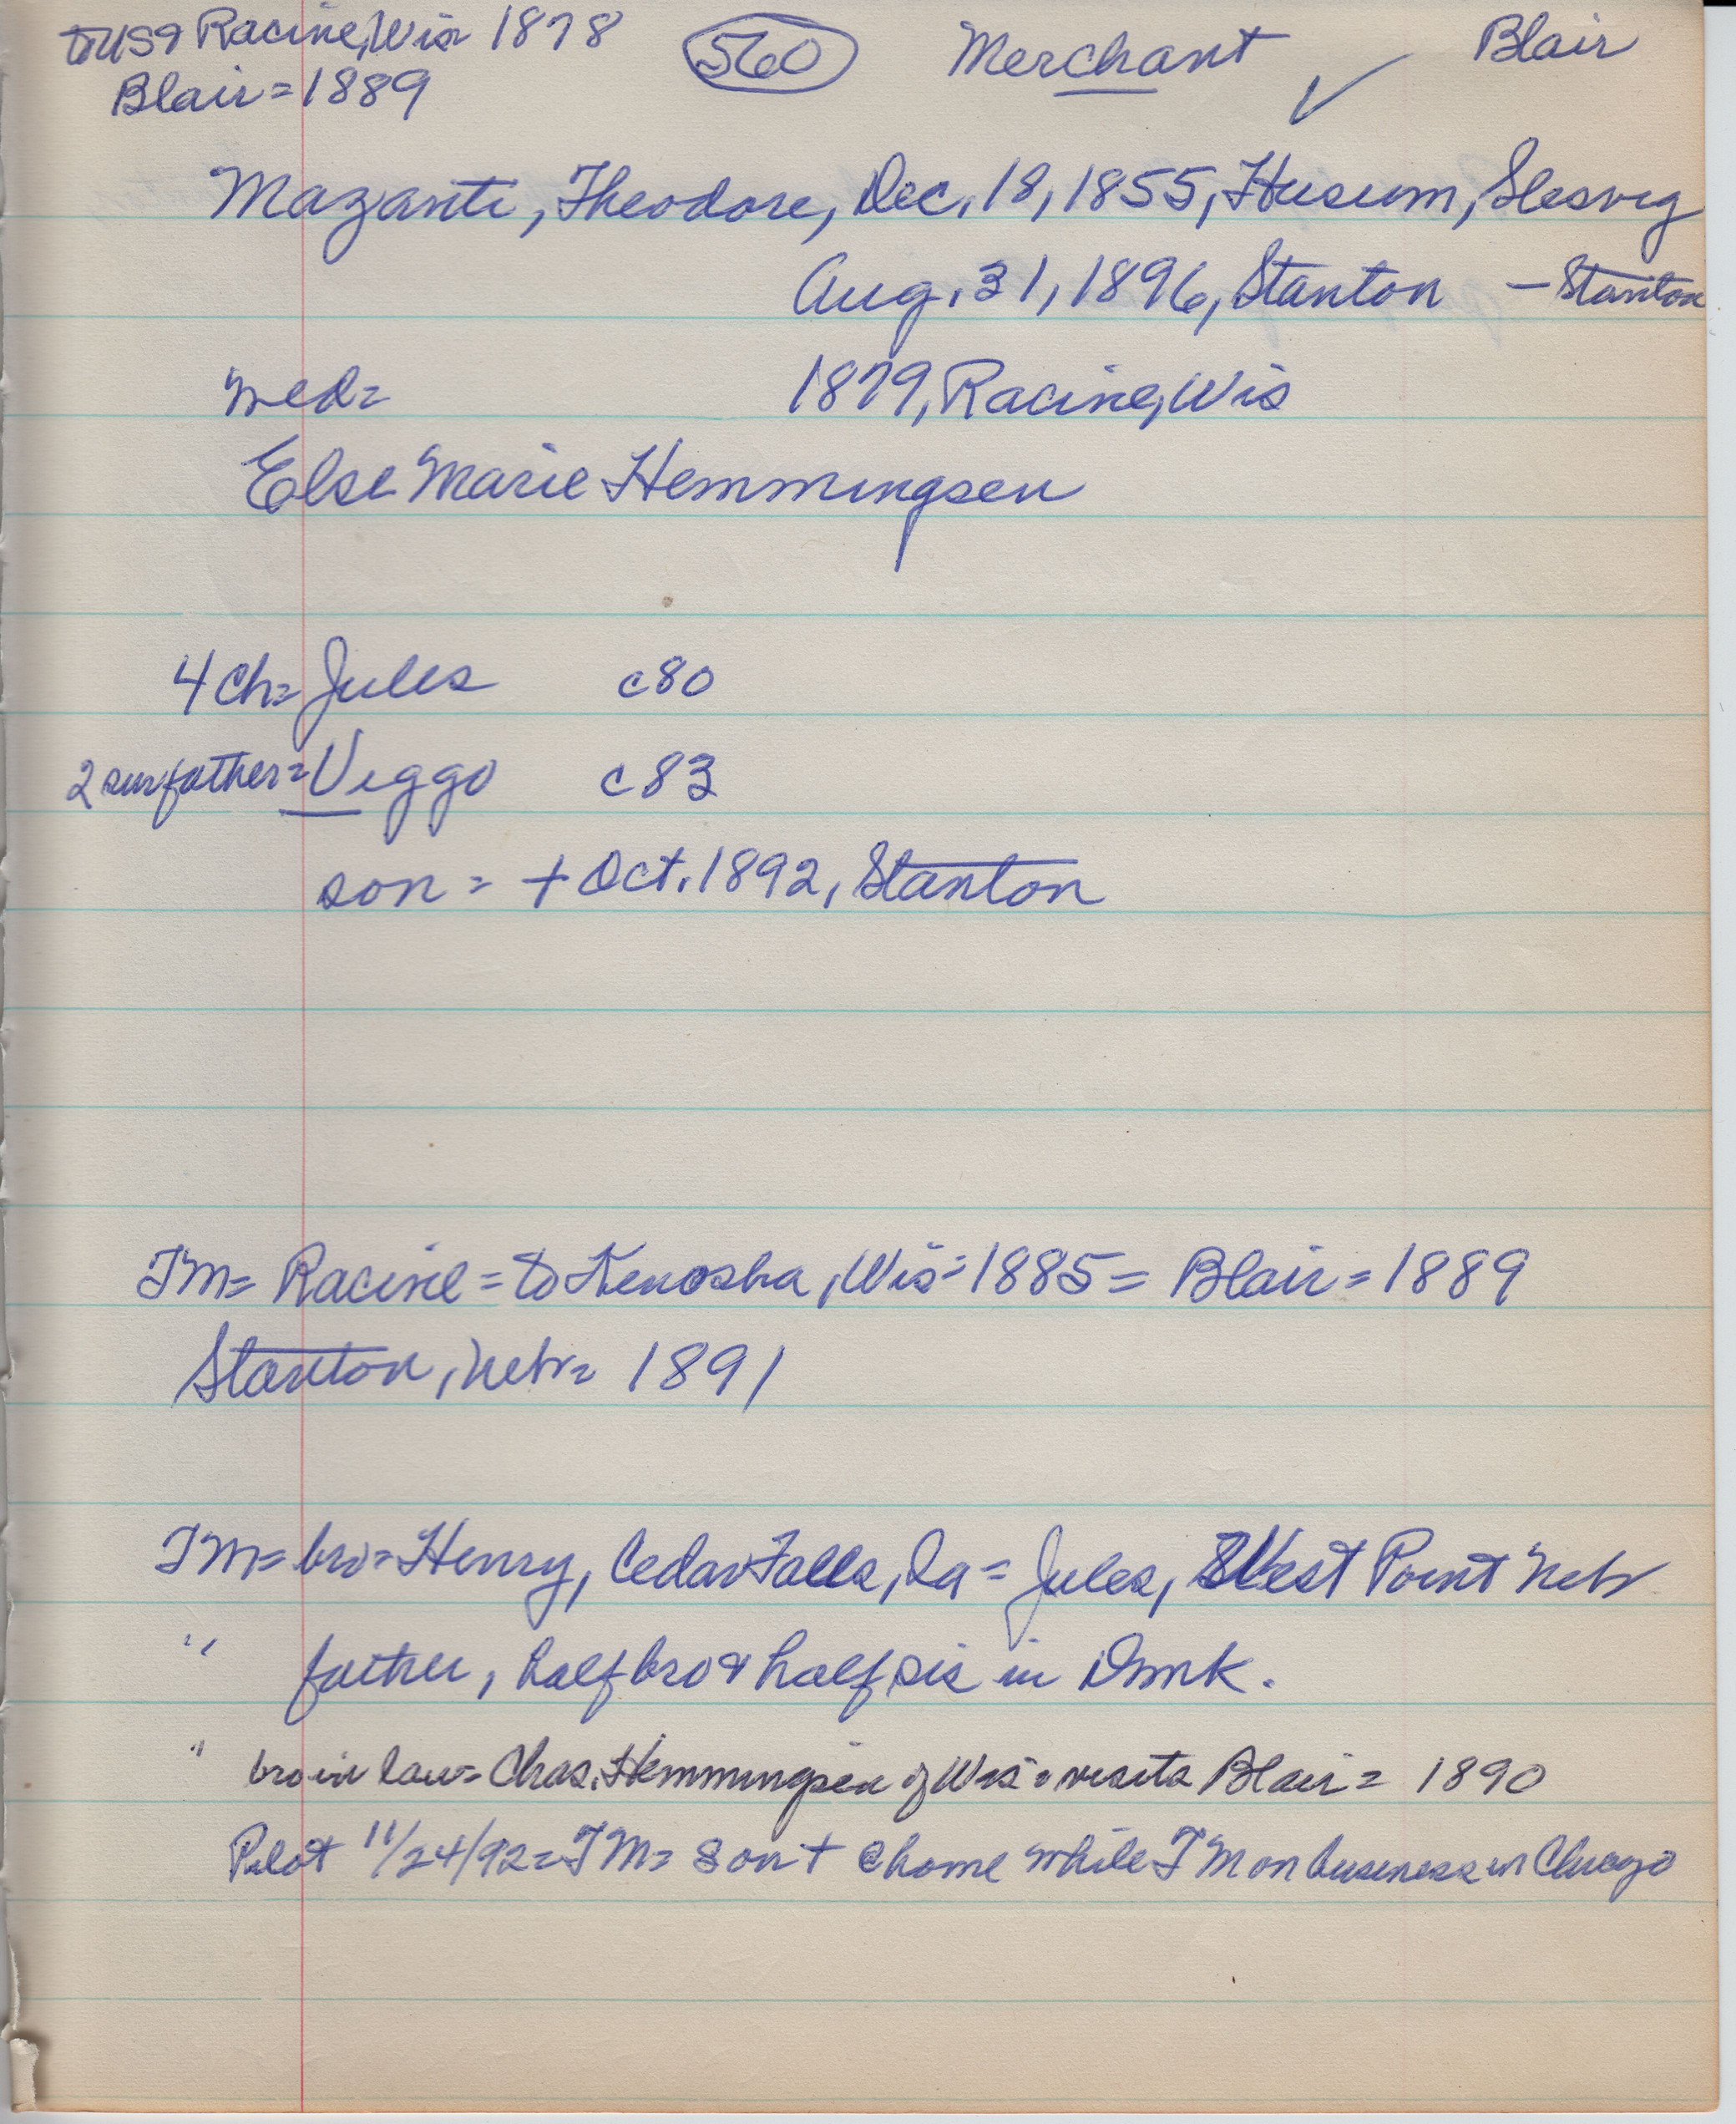 to US & Racine, Wis 1878 (560) Merchant ✓ Blair
Blair = 1889
Mazanti, Theodore, Dec. 18, 1855, Husum, Slesvig
Aug. 31, 1896, Stanton - Stanton
wed = 1879, Racine, Wis
Else Marie Hemmingsen
4 ch = Jules c80
2 sur father = Viggo c83
son = + Oct. 1892, Stanton
TM = Racine = to Kenosha, Wis = 1885 = Blair = 1889
Stanton, Nebr = 1891
TM = bro = Henry, Cedar Falls, Ia = Jules, West Point Nebr
" father, half bro & half sis in Dmk.
" bro in law = Chas. Hemmingsen of Wis = visits Blair = 1890
Pilot 11/24/92 = TM = son + @ home while TM on business in Chicago